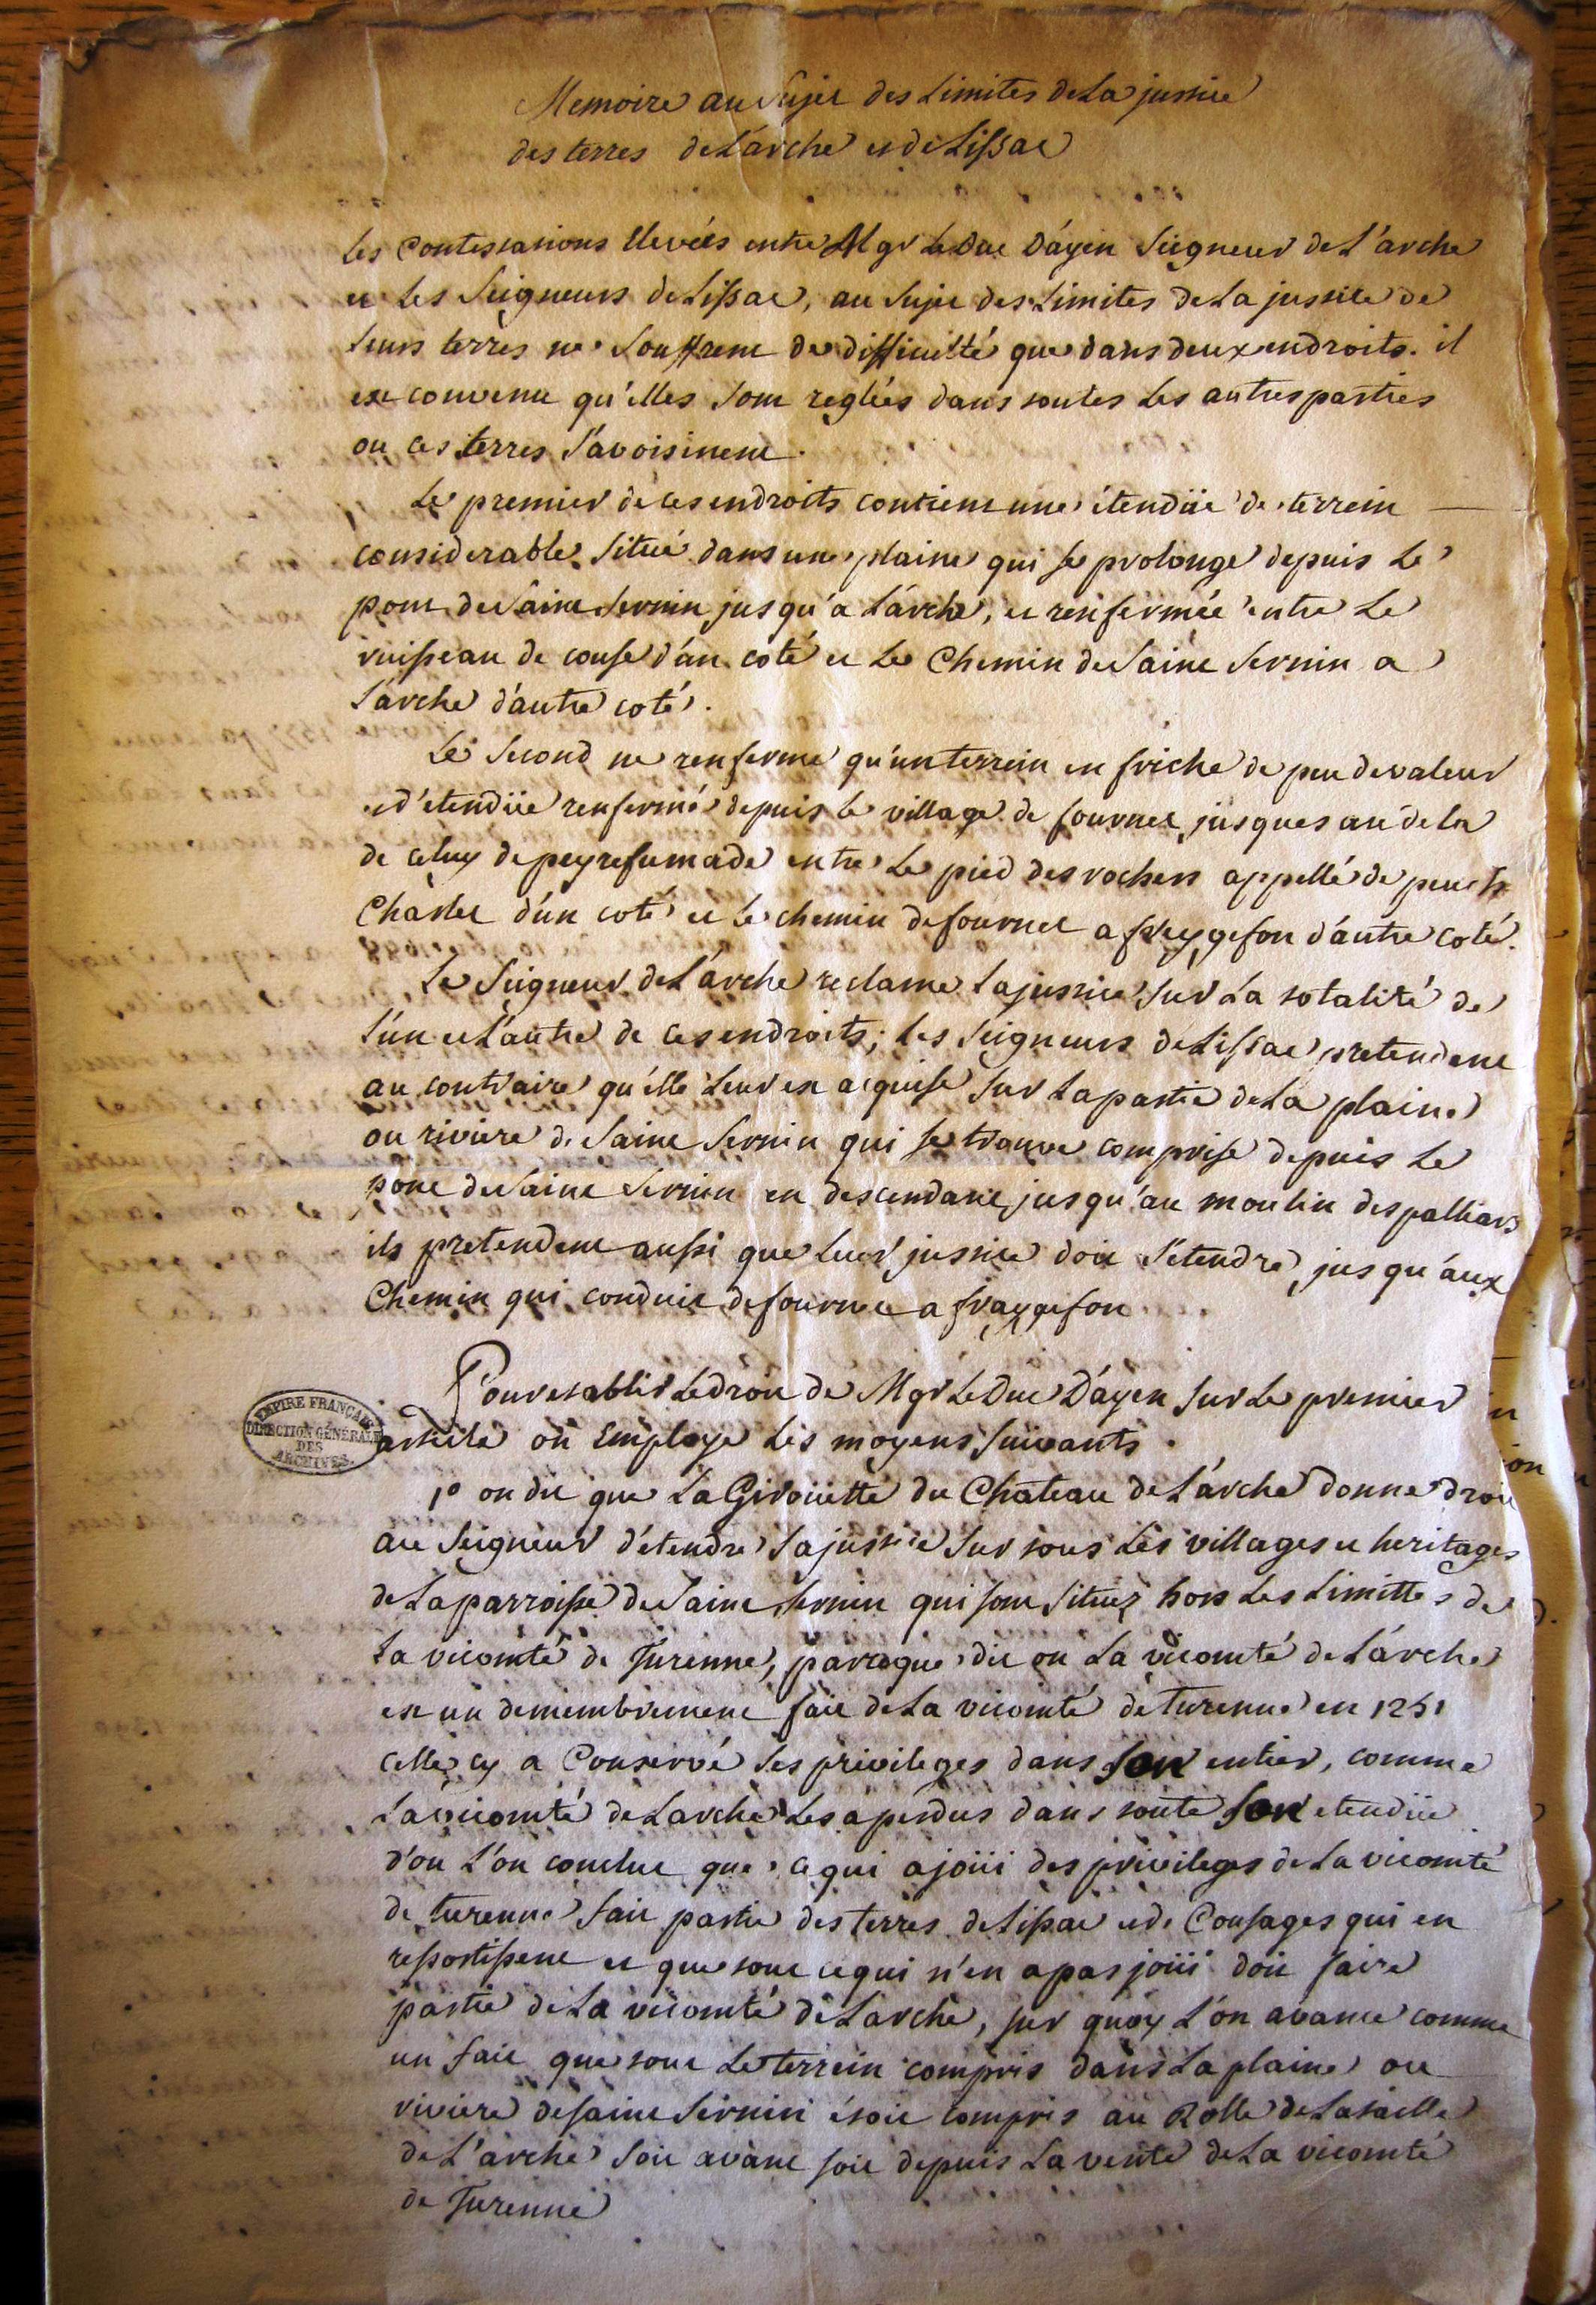 Memoire au Sujet des Limites de La justice
des terres de Larche et de Lissac
les Contestations Elevées entre Mgr Le Duc D'ayen Seigneur de L'arche
et les Seigneurs de Lissac, au Sujet des Limites de La justice de
leurs terres ne Souffrent de difficulté que dans deux endroits. il
est convenu qu'elles Sont reglées dans toutes Les autres parties
ou ces terres S'avoisinent.
Le premier de ces endroits contient une étendüe de terrein
considerable Situé dans une plaine qui Se prolonge depuis Le
pont de Saint Sernin jusqu'a Larche, et renfermée entre Le
ruisseau de couse d'un coté et Le Chemin de Saint Sernin a
Larche d'autre coté.
Le Second ne renferme qu'un terrein en friche de peu de valeur
et d'etendüe renfermé depuis le village de fournet jusques au dela
de celuy de peyrefumade entre Le pied des rochers appellé de
Chastel d'un coté et Le chemin de fournet a d'autre coté.
Le Seigneur de L'arche reclame La justice Sur La totalité de
l'un et L'autre de ces endroits; les Seigneurs de Lissac pretendent
au contraire qu'elle Leur est acquise Sur La partie de La plaine
ou riviere de Saint Sernin qui Se trouve comprise depuis Le
pont de Saint Sernin en descendant jusqu'au moulin des palliars
ils pretendent aussi que Leur justice doit S'etendre jusqu'aux
Chemin qui conduit de fournet a fraygefon
Pour etablir Le droit de Mgr Le Duc D'ayen Sur Le premier
article on Employe Les moyens Suivants.
1º on dit que La Giroüette du Chateau de Larche donne droit
au Seigneur d'étendre Sa justice Sur tous Les villages et heritages
de La parroisse de Saint Sernin qui Sont Situés hors Les Limittes de
La vicomté de Turenne, parceque dit on La vicomté de Larche
est un demembrement fait de La vicomté de Turenne en 1251
celle cy a Conservé Ses privileges dans Son entier, comme
La vicomté de Larche Les a perdus dans toute Son etendüe
d'ou L'on conclut que ce qui a joüi des privileges de La vicomté
de turenne fait partie des terres de Lissac et de Cousages qui en
ressortissent et que tout ce qui n'en a pas joüi doit faire
partie de La vicomté de Larche, sur quoy L'on avance comme
un fait que tout Le terrein compris dans La plaine ou
riviere de Saint Sernin étoit compris au Rolle de La taille
de L'arche Soit avant Soit depuis La vente de La vicomté
de Turenne
EMPIRE FRANÇAIS
DIRECTION GÉNÉRALE
DES
ARCHIVES.